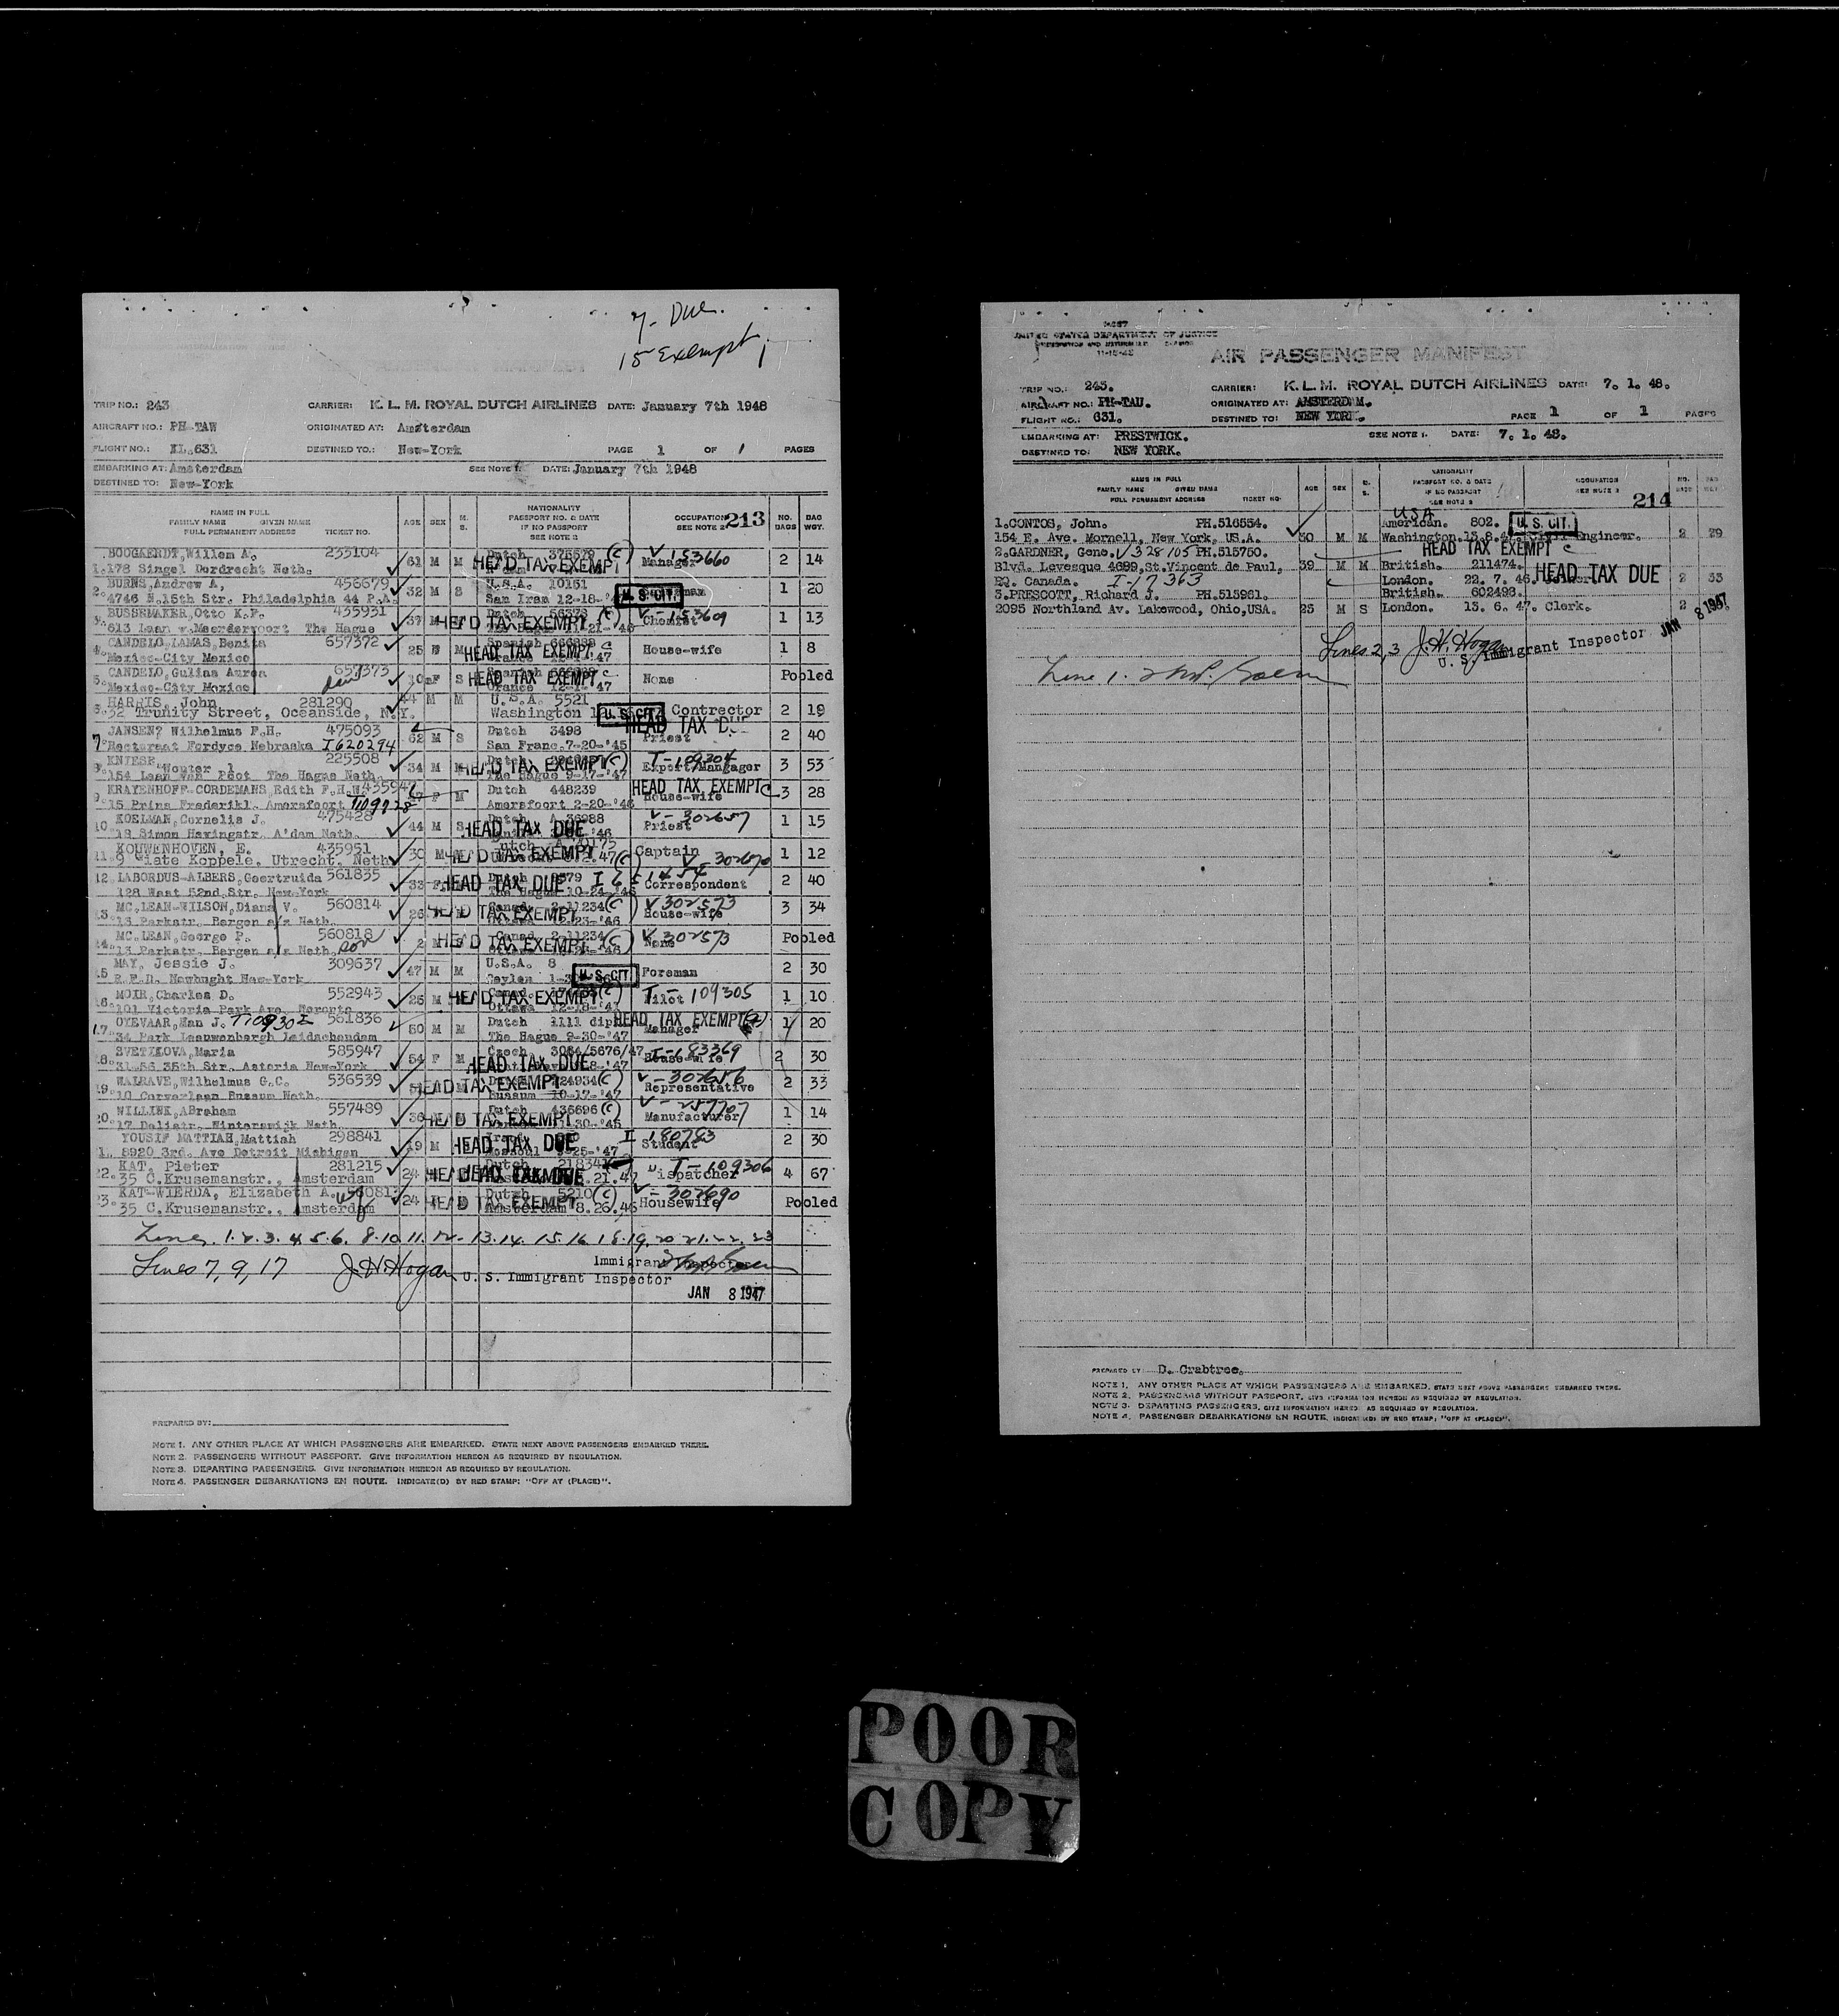 7- Due.
15 Exempt
TRIP NO.: 243 CARRIER: K. L. M. ROYAL DUTCH AIRLINES DATE: January 7th 1948
AIRCRAFT NO.: PH-TAW ORIGINATED AT: Amsterdam
FLIGHT NO.: KL.631 DESTINED TO.: New-York PAGE 1 OF 1 PAGES
EMBARKING AT: Amsterdam SEE NOTE 1. DATE: January 7th 1948
DESTINED TO: New-York
NAME IN FULL
FAMILY NAME GIVEN NAME
FULL PERMANENT ADDRESS TICKET NO.
AGE SEX M. S.
NATIONALITY
PASSPORT NO. & DATE
IF NO PASSPORT
SEE NOTE 2
OCCUPATION
SEE NOTE 2
213
NO. BAGS
BAG WGT.
BOOGAERDT, Willem A. 235104 Dutch (C) V-153660
1. 178 Singel Dordrecht Neth. 61 M M HEAD TAX EXEMPT Manager 2 14
BURNS, Andrew A, 456679 U.S.A. 10151
2. 4746 N.15th Str. Philadelphia 44 P.A. 32 M S San Iran 12-18- U. S. CIT. 1 20
BUSSEMAKER, Otto K.F. 435931 Dutch 56373 V-153609
613 Laan v. Meerdervoort The Hague 37 M HEAD TAX EXEMPT The Hague 11-21-'46 Chemist 1 13
CANDELO, LAMAS, Benita 657372 Spanish
4. Mexico-City Mexico 25 F M HEAD TAX EXEMPT C House-wife 1 8
CANDELO, Gulias Aurea 657373
5. Mexico-City Mexico 10 F S HEAD TAX EXEMPT C 12-1-'47 None Pooled
HARRIS, John 281290 44 M M U.S.A. 5521
32 Trunity Street, Oceanside, N.Y. Washington U. S. CIT. Contrector 2 19
JANSEN? Wilhelmus F.H. 475093 Dutch 3498 HEAD TAX DUE
7. Rectoraat Fordyce Nebraska I620294 62 M S San Franc. 7-20-'45 Priest 2 40
KNIESE, Wouter 225508 T-109304
8. 154 Laan van Poot The Hague Neth. 34 M M HEAD TAX EXEMPT (C) The Hague 9-17-'47 Export/Mangager 3 53
KRAYENHOFF-CORDEMANS, Edith F.H.W. Dutch 448239 HEAD TAX EXEMPT C
9. 15 Prins Frederikl. Amersfoort F M Amersfoort 2-20-'46 House-wife 3 28
KOELMAN, Cornelis J. 475428 Dutch A 36988 V-302657
10. 18 Simon Havingstr. A'dam Neth. 44 M S HEAD TAX DUE Priest 1 15
KOUWENHOVEN, E. 435951 Dutch Captain
11. 9 Wiate Koppele, Utrecht, Neth. 30 M HEAD TAX EXEMPT (C) V 302690 1 12
12. LABORDUS-ALBERS, Geertruida 561835 HEAD TAX DUE
128 West 52nd Str. New-York 33 F The Hague 10-24-'46 Correspondent 2 40
MC.LEAN-WILSON, Diana V. 560814 Canad. 2-11234 (C) V 302573
13. 13 Parkstr. Bergen a/z Neth. 26 HEAD TAX EXEMPT Ottawa House-wife 3 34
MC.LEAN, George P. 560818 Canad. 2-11234 (C) V 302573
14. 13 Parkstr. Bergen a/z Neth. son 2 HEAD TAX EXEMPT Ottawa None Pooled
MAY, Jessie J. 309637 U.S.A. 8
15 R.F.D. Newbught New-York 47 M M Ceylon U. S. CIT. Foreman 2 30
MOIR, Charles D. 552943 T-109305
16. 101 Victoria Park Ave. Toronto 26 M HEAD TAX EXEMPT (C) Ottawa 12-18-'47 Pilot 1 10
OYEVAAR, Man J. 561836 Dutch 1111 dipl. HEAD TAX EXEMPT
17. 34 Park Leeuwenbergh Leidschendam 50 M M The Hague 9-30-'47 Manager 1 20
SVETIKOVA, Maria 585947 Czech. 3064/5676/47 I-183369
18. 31-56 35th Str. Astoria New-York 54 F M HEAD TAX DUE House-wife 2 30
WALRAVE, Wilhelmus G.C. 536539 HEAD TAX EXEMPT (C) V-302656
19. 10 Corverlaan Bussum Neth. Bussum 10-17-'47 Representative 2 33
WILLINK, ABraham 557489 Dutch 436696 (C)
20. 17 Dalistr. Winterswijk Neth. 36 HEAD TAX EXEMPT Manufacturer 1 14
YOUSIF MATTIAH, Mattiah 298841 I 180783
8920 3rd. Ave Detroit Michigen 19 M HEAD TAX DUE Student 2 30
KAT, Pieter 281215 Dutch T-109306
22. 35 C.Krusemanstr., Amsterdam 24 HEAD TAX ispatcher 4 67
KAT-WIERDA, Elizabeth A. wife Dutch 5210 (C) V-302690
23. 35 C.Krusemanstr., Amsterdam 24 HEAD TAX EXEMPT Amsterdam 8.26.46 Housewife Pooled
Lines 1.2.3.4.5.6. 8.10 11. 12. 13.14. 15. 16. 18.19. 20 21. 22. 23
Immigrant Inspector
Lines 7, 9, 17 J.H. Hogan U. S. Immigrant Inspector
JAN 8 1947
PREPARED BY:
NOTE 1. ANY OTHER PLACE AT WHICH PASSENGERS ARE EMBARKED. STATE NEXT ABOVE PASSENGERS EMBARKED THERE.
NOTE 2. PASSENGERS WITHOUT PASSPORT. GIVE INFORMATION HEREON AS REQUIRED BY REGULATION.
NOTE 3. DEPARTING PASSENGERS. GIVE INFORMATION HEREON AS REQUIRED BY REGULATION.
NOTE 4. PASSENGER DEBARKATIONS EN ROUTE. INDICATE(D) BY RED STAMP: "OFF AT (PLACE)".
UNITED STATES DEPARTMENT OF JUSTICE
AIR PASSENGER MANIFEST
TRIP NO.: 243. CARRIER: K. L. M. ROYAL DUTCH AIRLINES DATE: 7. 1. 48.
AIRCRAFT NO.: PH-TAU. ORIGINATED AT: AMSTERDAM.
FLIGHT NO.: 631. DESTINED TO: NEW YORK. PAGE 1 OF 1 PAGES
EMBARKING AT: PRESTWICK. SEE NOTE 1. DATE: 7. 1. 48.
DESTINED TO: NEW YORK.
NAME IN FULL
FAMILY NAME GIVEN NAME
FULL PERMANENT ADDRESS TICKET NO.
AGE SEX
NATIONALITY
PASSPORT NO. & DATE
IF NO PASSPORT
SEE NOTE 2
OCCUPATION
SEE NOTE 2
214
USA
1.CONTOS, John. PH.516554. American. 802. U. S. CIT.
154 E. Ave. Mornell, New York, US.A. 30 M M Washington.13.8.47. Civil Engineer. 2 29
2.GARDNER, Gene. V328105 PH.515750. HEAD TAX EXEMPT C
Blvd. Levesque 4699, St.Vincent de Paul, 39 M M British. 211474.
EQ. Canada. I-17363 London. 22. 7. 46. HEAD TAX DUE 2 33
3.PRESCOTT, Richard J. PH.515961. British. 602493.
2095 Northland Av. Lakewood, Ohio,USA. 25 M S London. 13. 6. 47. Clerk. 2
JAN 8 1947
Lines 2, 3 J.H. Hogan
U. S. Immigrant Inspector
Line 1.
PREPARED BY: D. Crabtree.
NOTE 1. ANY OTHER PLACE AT WHICH PASSENGERS ARE EMBARKED. STATE NEXT ABOVE PASSENGERS EMBARKED THERE.
NOTE 2. PASSENGERS WITHOUT PASSPORT. GIVE INFORMATION HEREON AS REQUIRED BY REGULATION.
NOTE 3. DEPARTING PASSENGERS. GIVE INFORMATION HEREON AS REQUIRED BY REGULATION.
NOTE 4. PASSENGER DEBARKATIONS EN ROUTE. INDICATE(D) BY RED STAMP: "OFF AT (PLACE)".
POOR
COPY